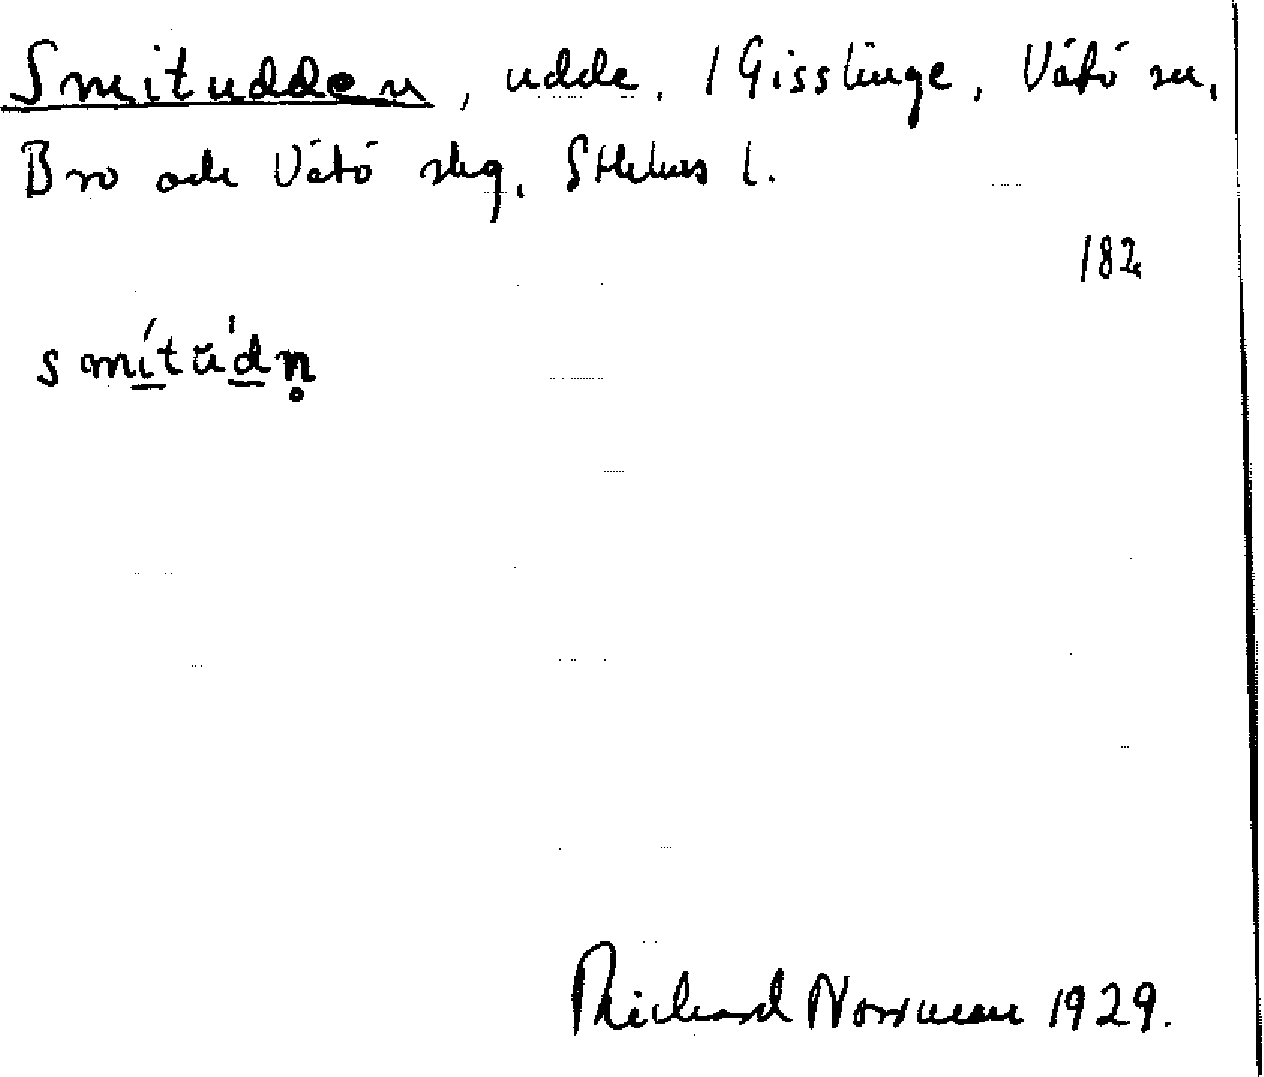 Smitudden, udde, i Gisslinge, Vätö sn,
Bro och Vätö skg, Sthlms l.
182
smítŭ'dn̥
Richard Norrman 1929.